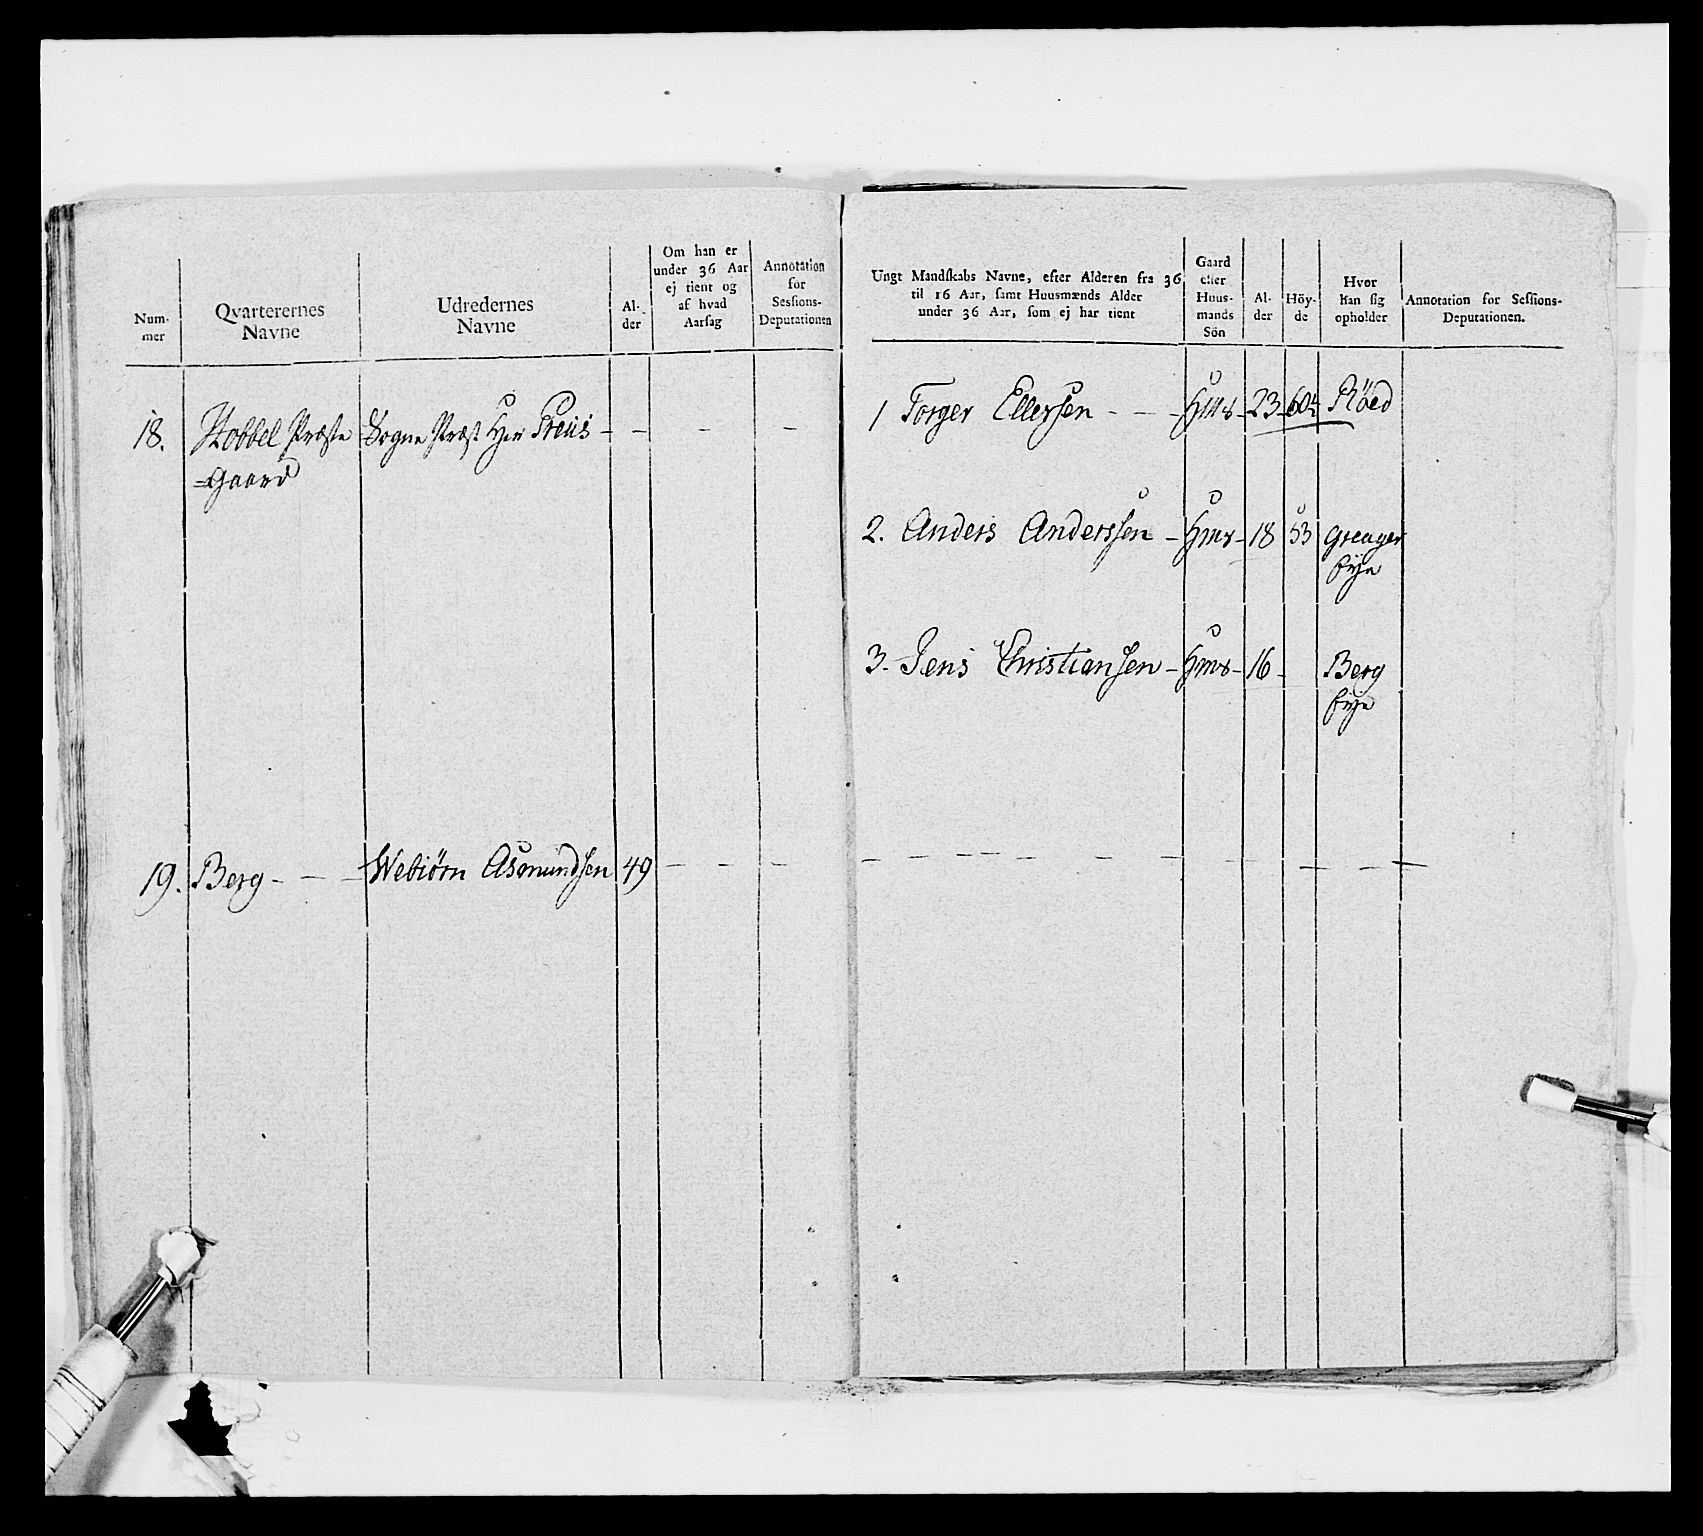 Num-
mer
Qvarterernes
Navne
Udredernes
Navne
Al-
der
Om han er
under 36 Aar
ej tient og
af hvad
Aarsag
Annotation
for
Sessions-
Deputationen
18.
Præste
=Gaard
Sogne Præst Her Preüs - - - -
19. Berg - - - Webiørn Asmundsen 49 - - -
Ungt Mandskabs Navne, efter Alderen fra 36
til 16 Aar, samt Huusmænds Alder
under 36 Aar, som ej har tient
Gaard
eller
Huus-
mands
Sön
Al-
der
Höy-
de
Hvor
han sig
opholder
Annotation for Sessions-
Deputationen.
1 Torger Ellefsen - - - Hüs - 23 Röed
2. Anders Anderssen - Hüs - 18 53
Eye
3. Jens Christiansen - Hüs - 16 - Berg
Eye